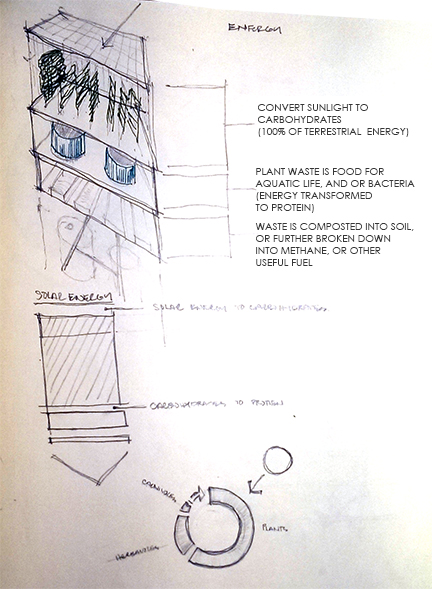 ENERGY
CONVERT SUNLIGHT TO
CARBOHYDRATES
(100% OF TERRESTRIAL ENERGY)
PLANT WASTE IS FOOD FOR
AQUATIC LIFE, AND OR BACTERIA
(ENERGY TRANSFORMED
TO PROTEIN)
WASTE IS COMPOSTED INTO SOIL,
OR FURTHER BROKEN DOWN
INTO METHANE, OR OTHER
USEFUL FUEL
SOLAR ENERGY
SOLAR ENERGY TO CARBOHYDRATES
CARBOHYDRATES TO PROTEIN
CARNIVORES
PLANTS
HERBIVORES